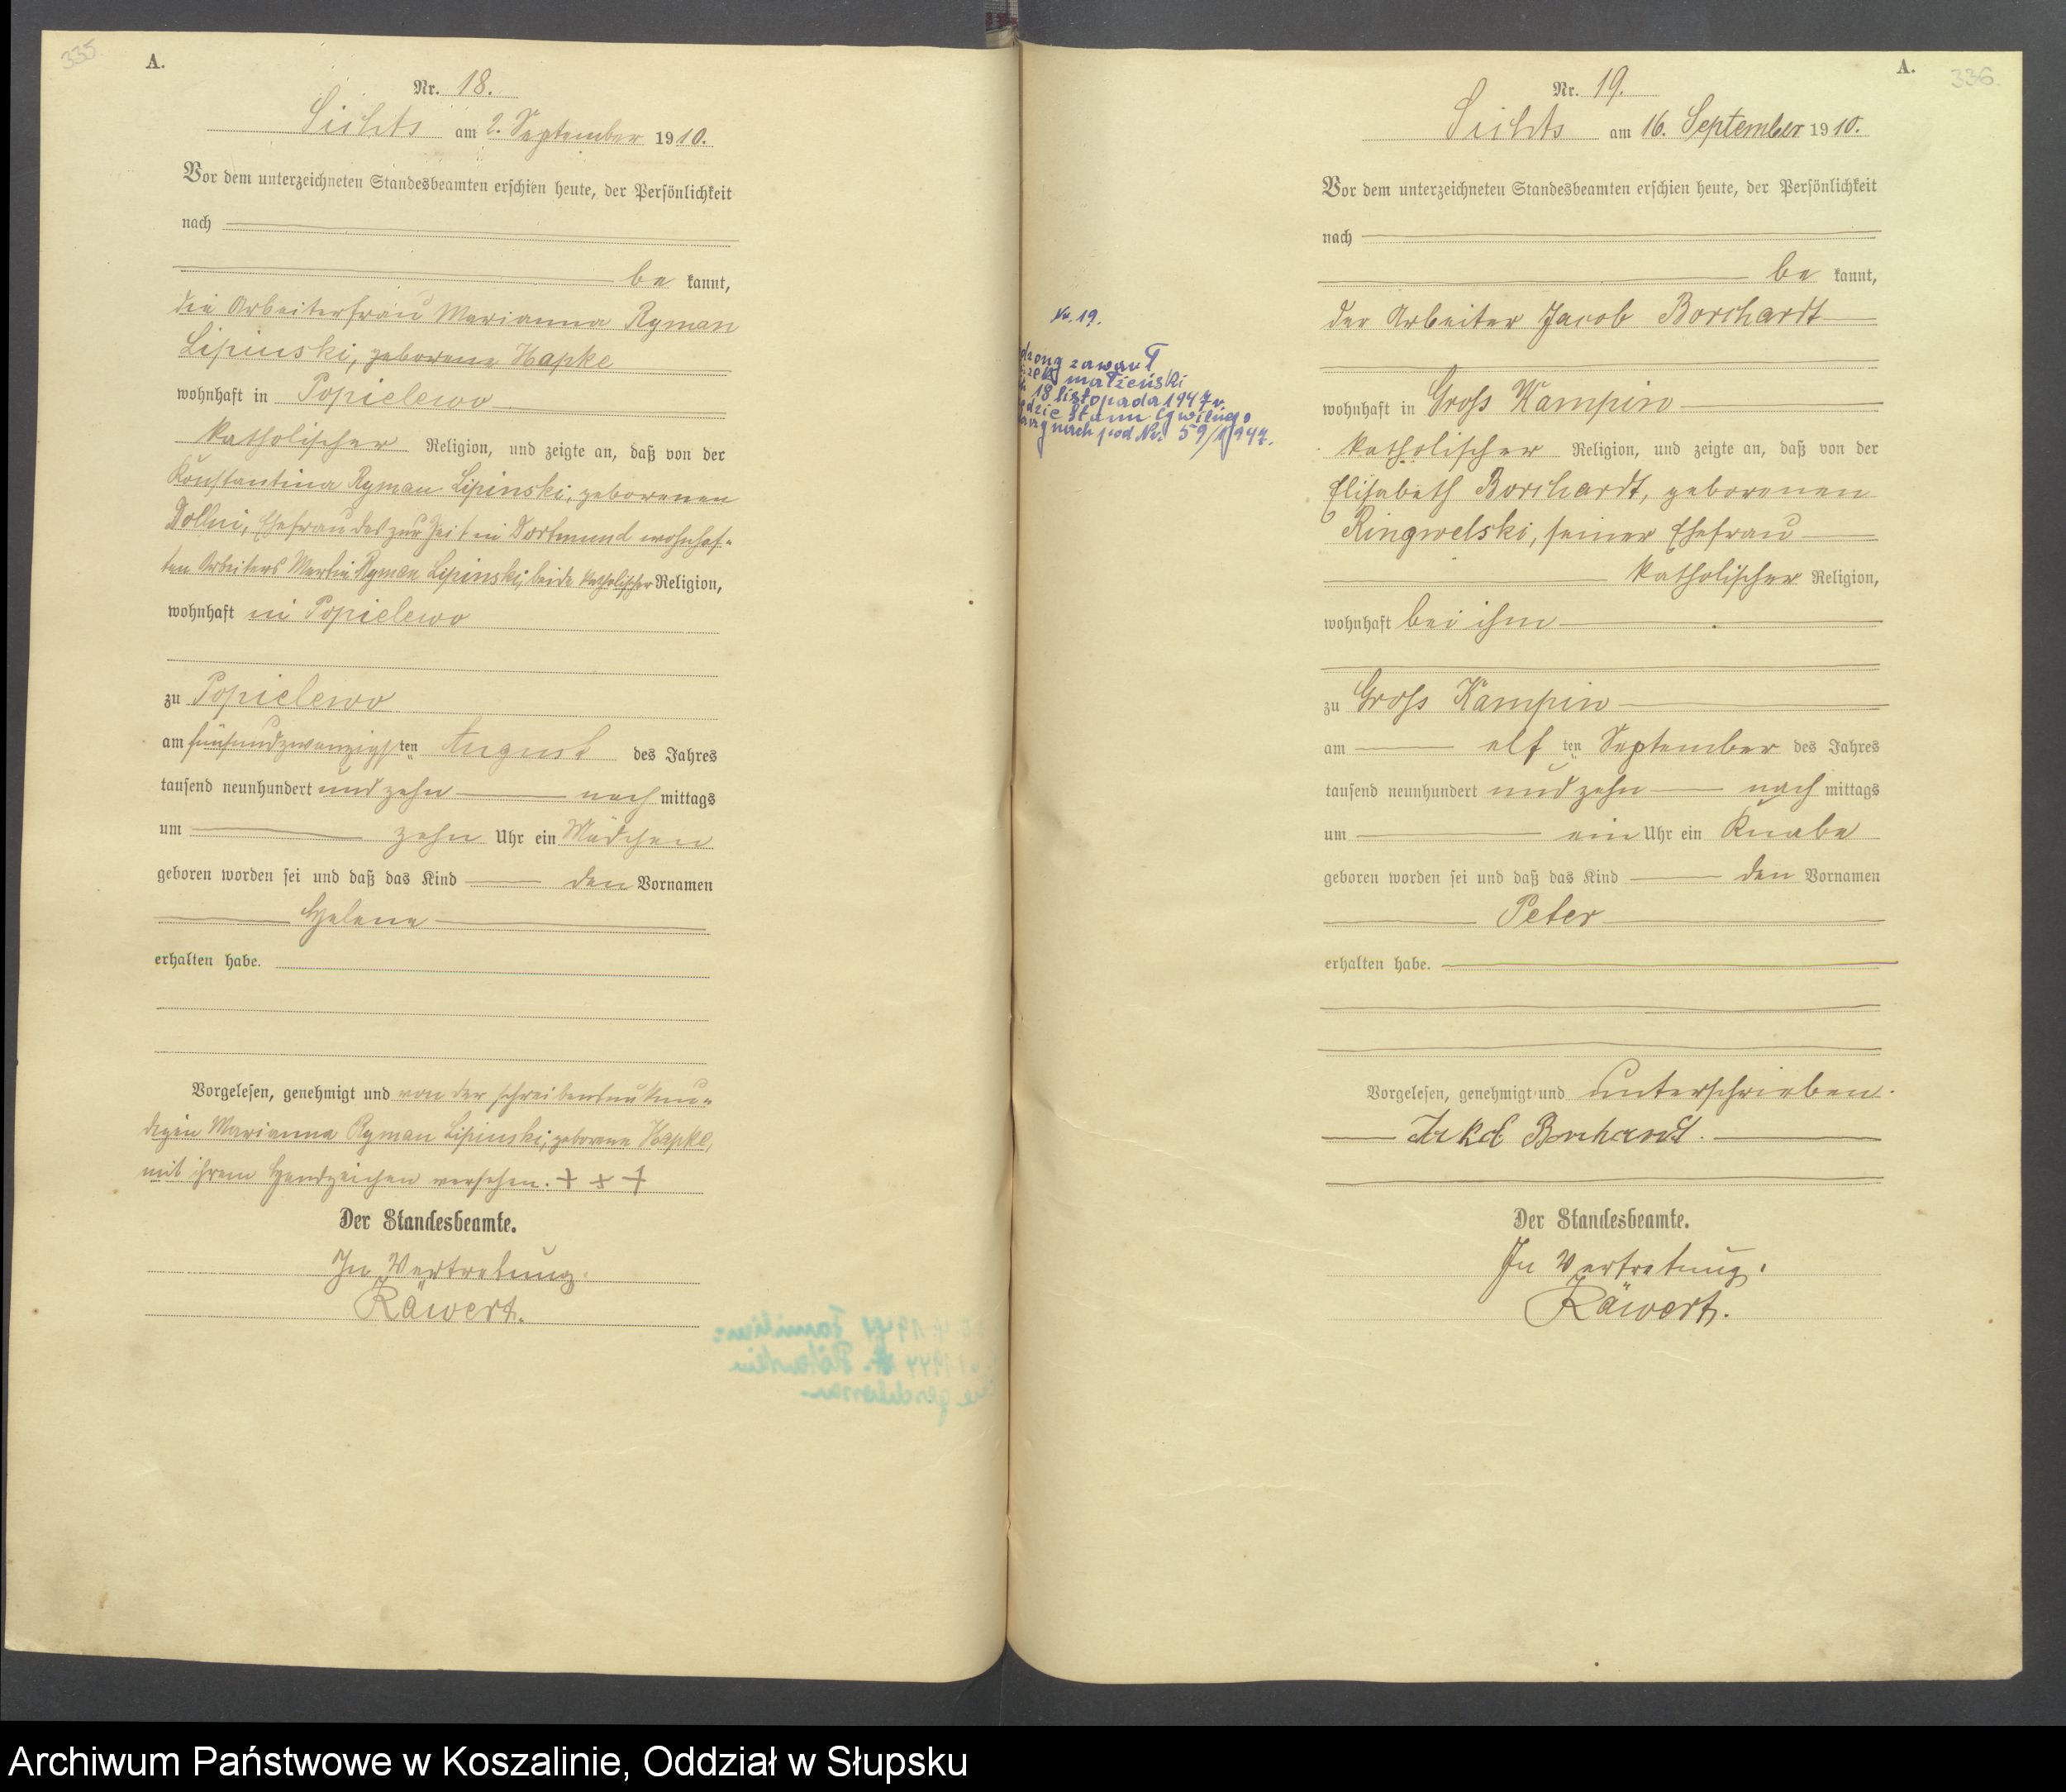 335
A.
Nr. 18.
Lichts am 2. September 1910.
Vor dem unterzeichneten Standesbeamten erschien heute, der Persönlichkeit
nach
be kannt,
die Arbeiterfrau Marianna Ryman
Lipinski, geborene Hapke
wohnhaft in Popielewo
katholischer Religion, und zeigte an, daß von der
Konstantina Ryman Lipinski, geborenen
Dollni, Ehefrau des zur Zeit in Dortmund wohnhaf-
ten Arbeiters Martin Ryman Lipinski, beide katholischer Religion,
wohnhaft in Popielewo
zu Popielewo
am fünfundzwanzigsten August des Jahres
tausend neunhundert und zehn nach mittags
um zehn Uhr ein Mädchen
geboren worden sei und daß das Kind den Vornamen
Helene
erhalten habe.
Vorgelesen, genehmigt und von der schreibensunkun-
digen Marianna Ryman Lipinski, geborene Hapke,
mit ihrem Handzeichen versehen. + + +
Der Standesbeamte.
In Vertretung.
Räwert.
A.
336
Nr. 19.
Lichts am 16. September 1910.
Vor dem unterzeichneten Standesbeamten erschien heute, der Persönlichkeit
nach
be kannt,
der Arbeiter Jacob Borchardt
wohnhaft in Gross Kampin
katholischer Religion, und zeigte an, daß von der
Elisabeth Borchardt, geborenen
Ringwelski, seiner Ehefrau
katholischer Religion,
wohnhaft bei ihm
zu Gross Kampin
am elf ten September des Jahres
tausend neunhundert und zehn nach mittags
um ein Uhr ein Knabe
geboren worden sei und daß das Kind den Vornamen
Peter
erhalten habe.
Vorgelesen, genehmigt und unterschrieben.
Jakob Borchardt.
Der Standesbeamte.
In Vertretung.
Räwert.
Nr. 19.
zawarł
małżeński
18 listopada 1947 r.
Stanu Cywilnego
pod Nr. 59/1947.
Archiwum Państwowe w Koszalinie, Oddział w Słupsku